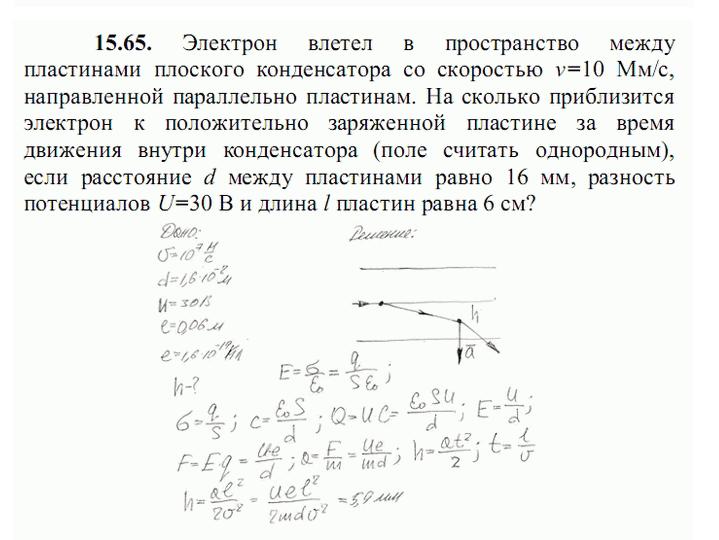 15.65. Электрон влетел в пространство между
пластинами плоского конденсатора со скоростью v=10 Мм/с,
направленной параллельно пластинам. На сколько приблизится
электрон к положительно заряженной пластине за время
движения внутри конденсатора (поле считать однородным),
если расстояние d между пластинами равно 16 мм, разность
потенциалов U=30 В и длина l пластин равна 6 см?
Дано:
Решение:
υ=10⁷ м/с
d=1,6·10⁻² м
U=30В
l=0,06м
e=1,6·10⁻¹⁹Кл
h-?
h
a̅
E=σ/ε₀=q/Sε₀;
σ=q/S; C=ε₀S/d; Q=UC=ε₀SU/d; E=U/d;
F=Eq=Ue/d; a=F/m=Ue/md; h=at²/2; t=l/υ
h=al²/2υ²=Uel²/2mdυ²=5,9мм